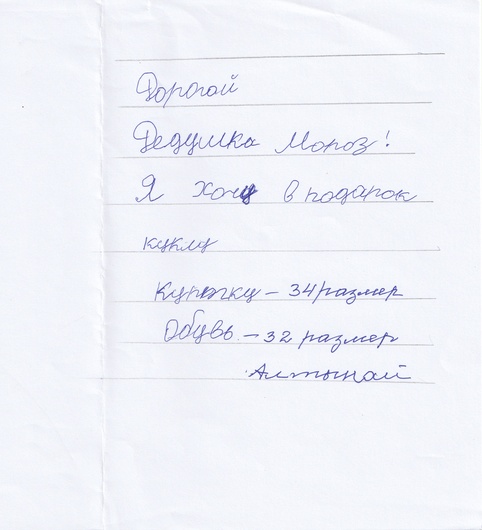 Дорогой
Дедушка Мороз!
Я хочу в подарок
куклу
Куртку – 34 размер
Обувь – 32 размер
Алтынай